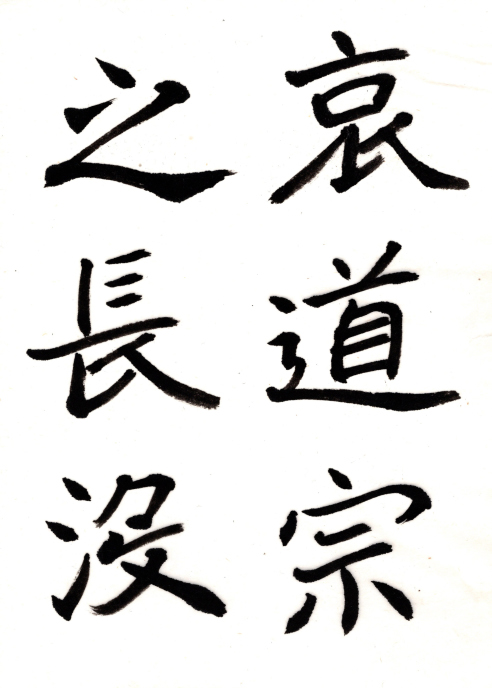 哀道宗
之長沒